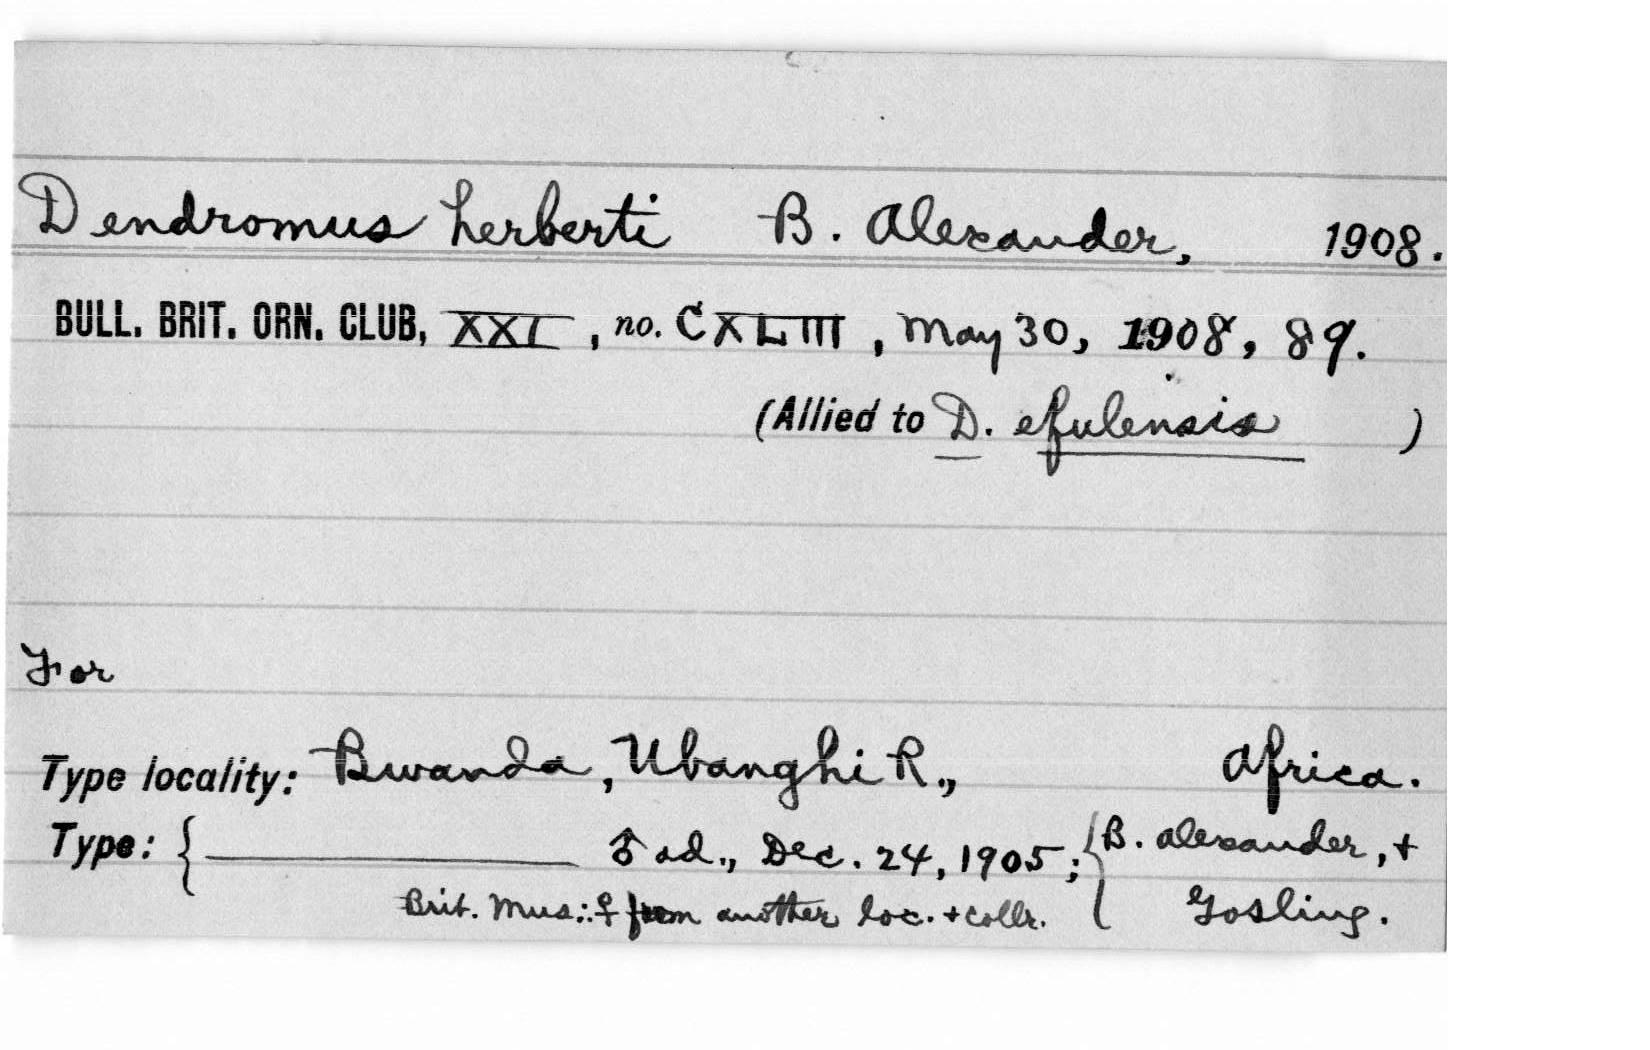 Dendromus herberti B. Alexander, 1908.
BULL. BRIT. ORN. CLUB, XXI, no. CXLIII, May 30, 1908, 89.
(Allied to D. efulensis )
For
Type locality: Bwanda, Ubanghi R., Africa.
Type: { ♂ ad., Dec. 24, 1905; { B. Alexander, +
Brit. Mus.: ♀ from another loc. + collr. Gosling.